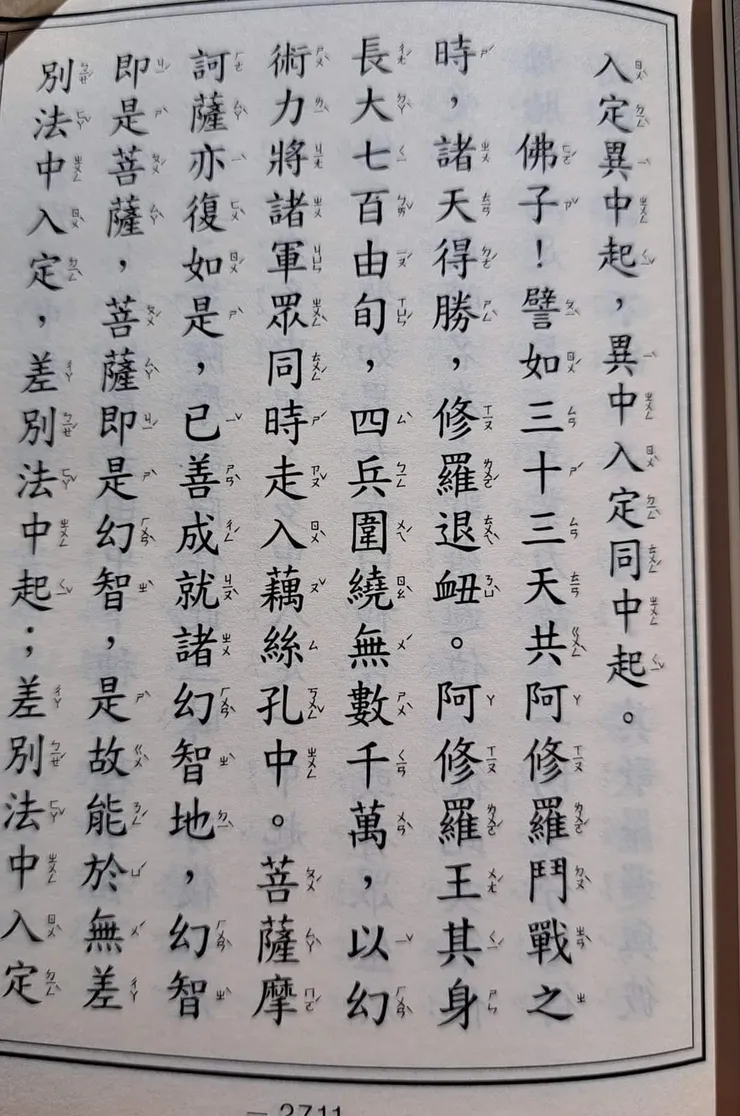 入定異中起，異中入定同中起。
佛子！譬如三十三天共阿修羅鬥戰之
時，諸天得勝，修羅退衄。阿修羅王其身
長大七百由旬，四兵圍繞無數千萬，以幻
術力將諸軍眾同時走入藕絲孔中。菩薩摩
訶薩亦復如是，已善成就諸幻智地，幻智
即是菩薩，菩薩即是幻智，是故能於無差
別法中入定，差別法中起；差別法中入定
— 2711